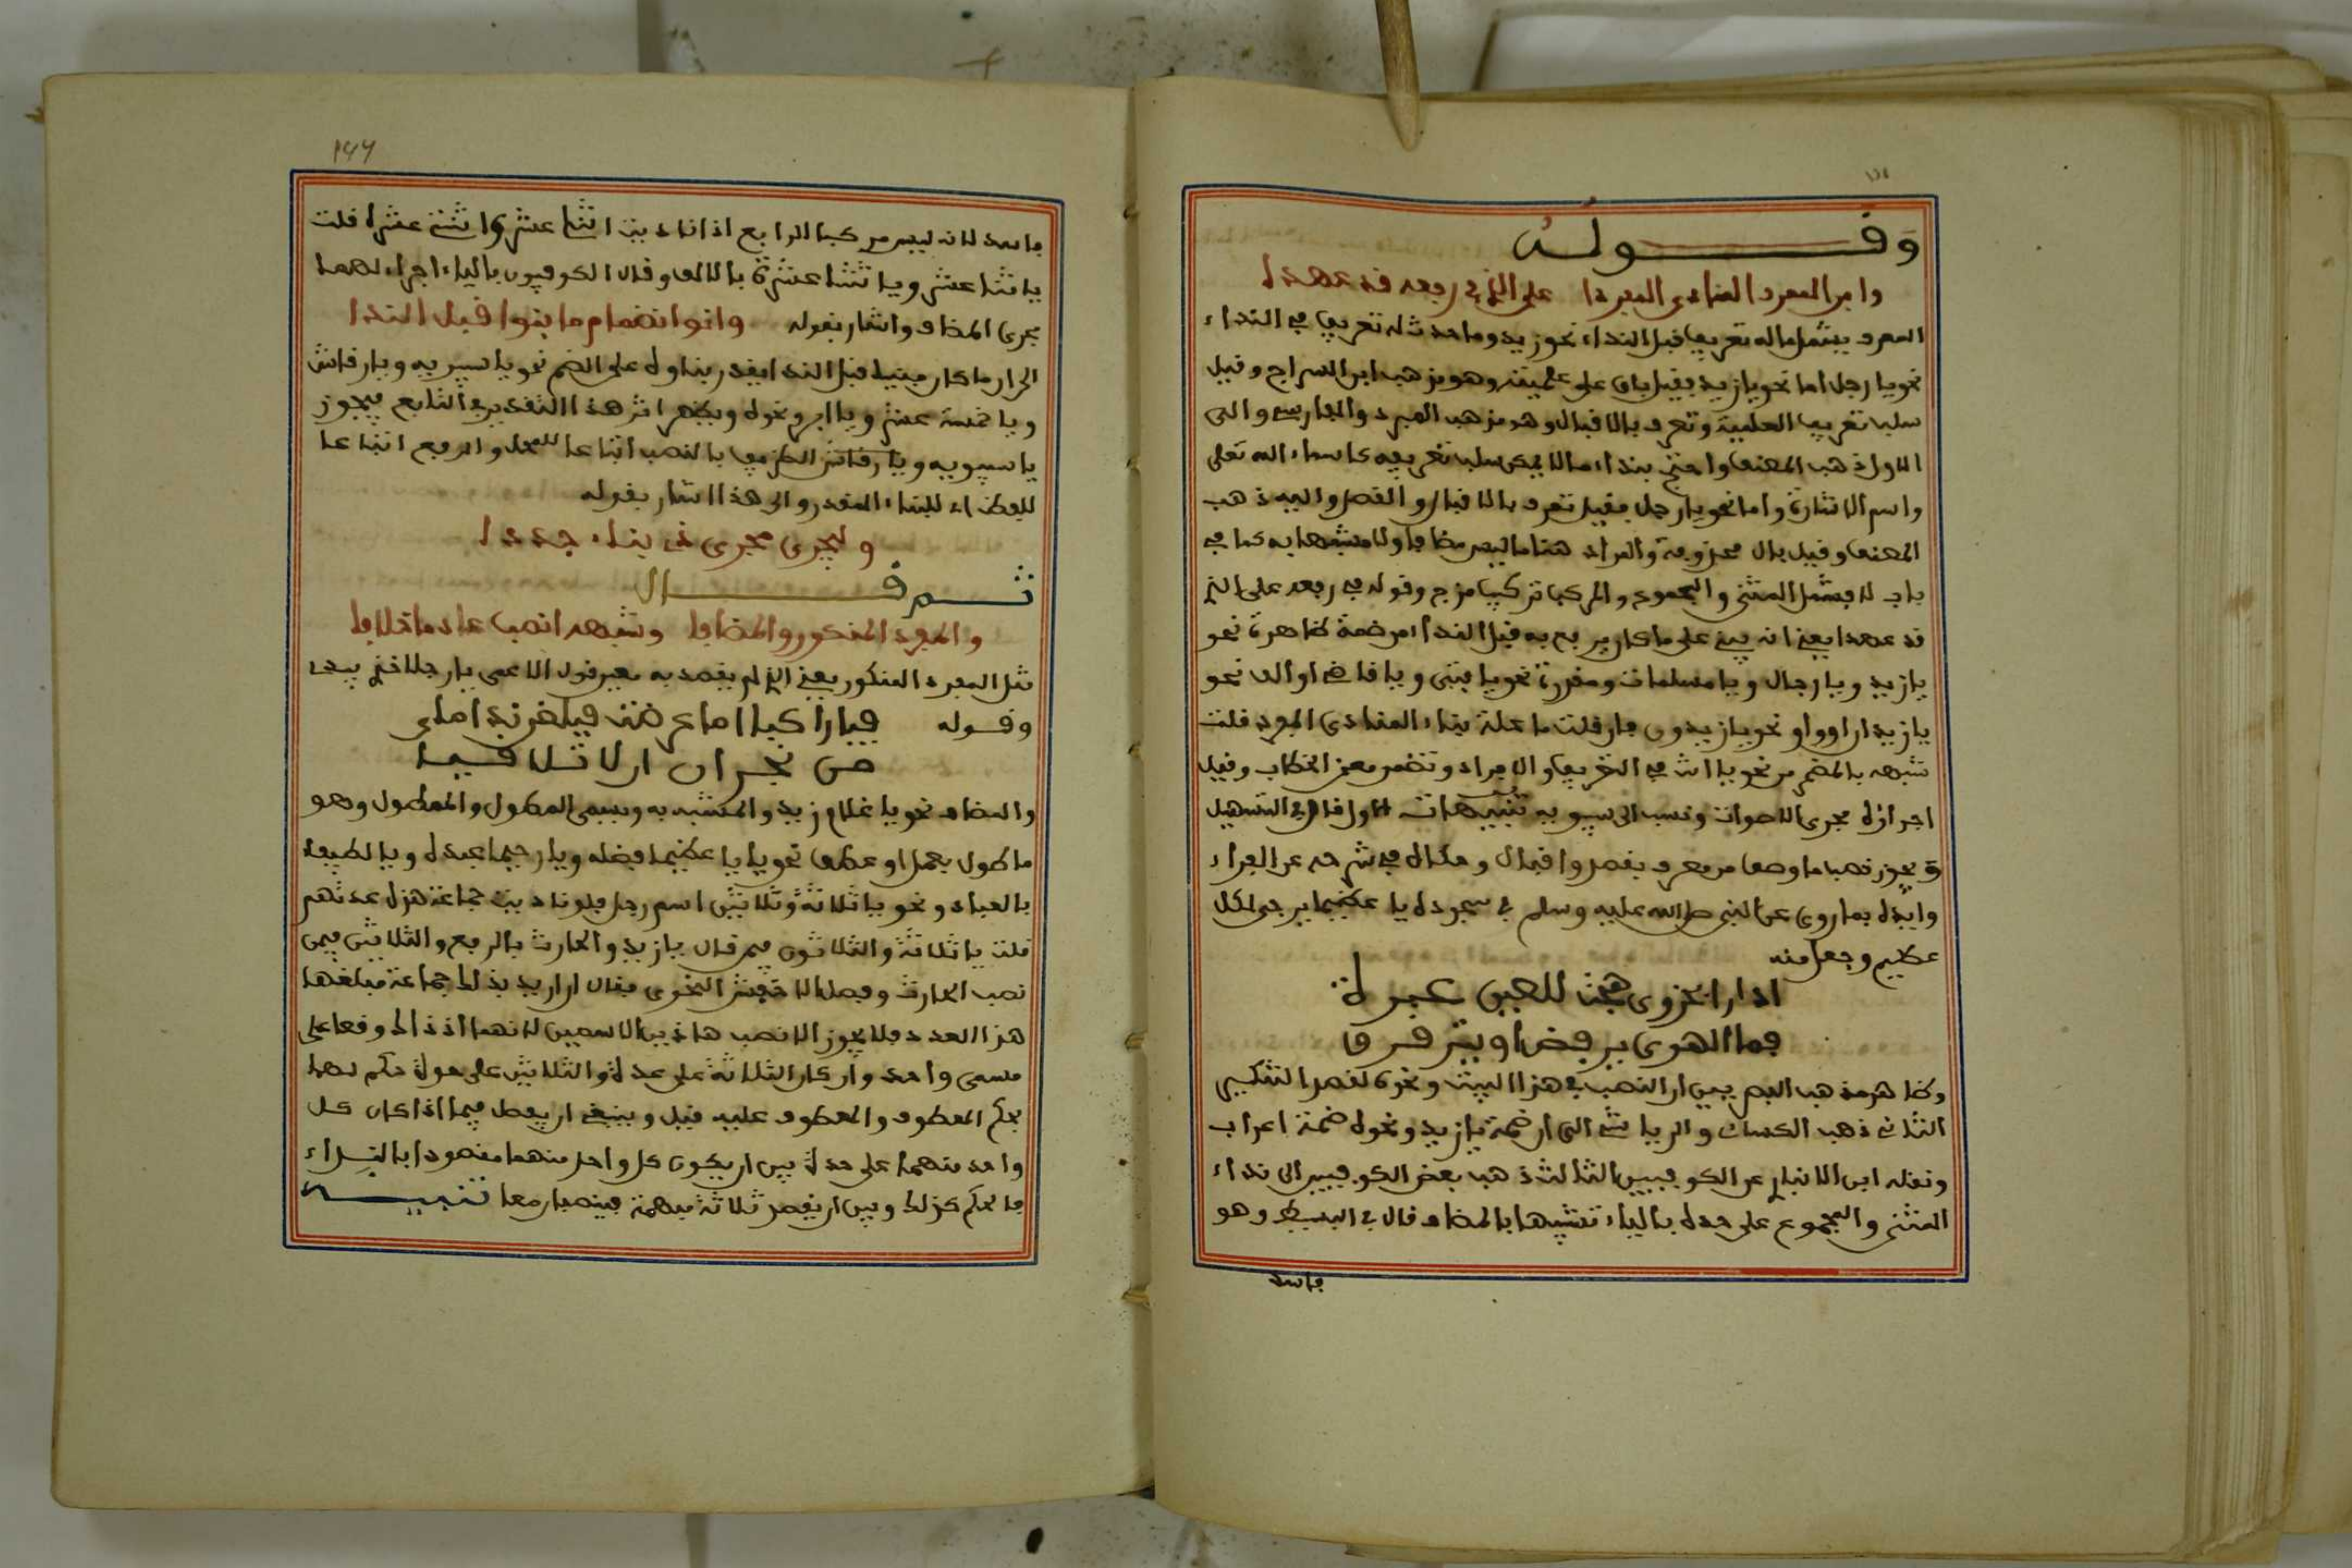 وقوله
وابن المعرف المنادى المفردا على الذي في رفعه قد عهدا
المعرف يشمل ماله تعريف قبل النداء نحو زيد وما حدث له تعريف في النداء
نحو يا رجل اما نحو يا زيد فقيل باق على علميته وهو مذهب ابن السراج وقيل
سلب تعريف العلمية وتعرف بالاقبال وهو مذهب المبرد والفارسي والى
الاول ذهب المصنف واحتج بنداء ما لا يمكن سلب تعريفه كاسماء الله تعلى
واسم الاشارة واما نحو يا رجل فقيل تعرف بالاقبال والقصد واليه ذهب
المصنف وقيل بال محذوفة والمراد هنا ما ليس مضافا ولا مشبها به كما في
باب لا فشمل المثنى والمجموع والمركب تركيب مزج وقوله في رفعه على الذي
قد عهدا يعني انه يبنى على ما كان يرفع به قبل النداء من ضمة ظاهرة نحو
يا زيد ويا رجال ويا مسلمات ومقدرة نحو يا فتى ويا قاضي او الف نحو
يا زيدان او واو نحو يا زيدون فان قلت ما علة بناء المنادى المفرد قلت
شبهه بالمضمر من نحو يا انت في التعريف والافراد وتضمن معنى الخطاب وقيل
اجراؤه مجرى الاصوات ونسب الى سيبويه تنبيهات الاول قال في التسهيل
ويجوز نصب ما وصف من معرف بقصد واقبال وحكاه في شرحه عن الفراء
وايده بما روي عن النبي صلى الله عليه وسلم في سجوده يا عظيما يرجى لكل
عظيم وجعل منه
ادارا بحزوى هجت للعين عبرة
فماء الهوى يرفض او يترقرق
وظاهر مذهب البصريين ان النصب في هذا البيت ونحوه لقصد التنكير
الثاني ذهب الكسائي والرياشي الى ان ضمة يا زيد ونحوه ضمة اعراب
ونقله ابن الانباري عن الكوفيين الثالث ذهب بعض الكوفيين الى نداء
المثنى والمجموع على حده بالياء تشبيها بالمضاف قال في البسيط وهو
فاسد
فاسد لانه ليس مركبا الرابع اذا ناديت اثنا عشر واثنتي عشرة قلت
يا اثنا عشر ويا اثنتا عشرة بالالف وقال الكوفيون بالياء اجراء لهما
مجرى المضاف واشار بقوله وانو انضمام ما بنوا قبل الندا
الى ان ما كان مبنيا قبل الندا يقدر بناؤه على الضم نحو يا سيبويه ويا رقاش
ويا خمسة عشر ويا ابرق نحره ويظهر اثر هذا التقدير في التابع فيجوز
يا سيبويه ويا رقاش الظريف بالنصب اتباعا للمحل والرفع اتباعا
للفظ اي للبناء المقدر والى هذا اشار بقوله
وليجر مجرى ذي بناء جددا
ثم قال
والمفرد المنكور والمضافا وشبهه انصب عادما خلافا
مثل المفرد المنكور يعني الذي لم يقصد به معين قول الاعمى يا رجلا خذ بيدي
وقوله فيا راكبا اما عرضت فبلغن نداماي
من نجران ان لا تلاقيا
والمضاف نحو يا غلام زيد والمشبه به ويسمى المطول والممطول وهو
ما طول بعمل او عطف نحو يا عظيما فضله ويا رحيما عبده ويا لطيفا
بالعباد ونحو يا ثلاثة وثلاثين اسم رجل فلو ناديت جماعة هذه عدتهم
قلت يا ثلاثة والثلاثون فيمن قال يا زيد والحارث بالرفع والثلاثين فيمن
نصب الحارث وفصل الاخفش النحوي فقال ان اريد بذلك جماعة مبلغها
هذا العدد فلا يجوز الا نصب هاذين الاسمين لانهما اذ ذاك وقعا على
مسمى واحد وان كان الثلاثة على حدة والثلاثين على حدة حكم لهما
بحكم المعطوف والمعطوف عليه قبل وينبغي ان يفصل فيما اذا كان كل
واحد منهما على حدة بين ان يكون كل واحد منهما مقصودا بالنداء
فالحكم كذلك وبين ان يقصد ثلاثة مبهمة فينصبان معا تنبيه